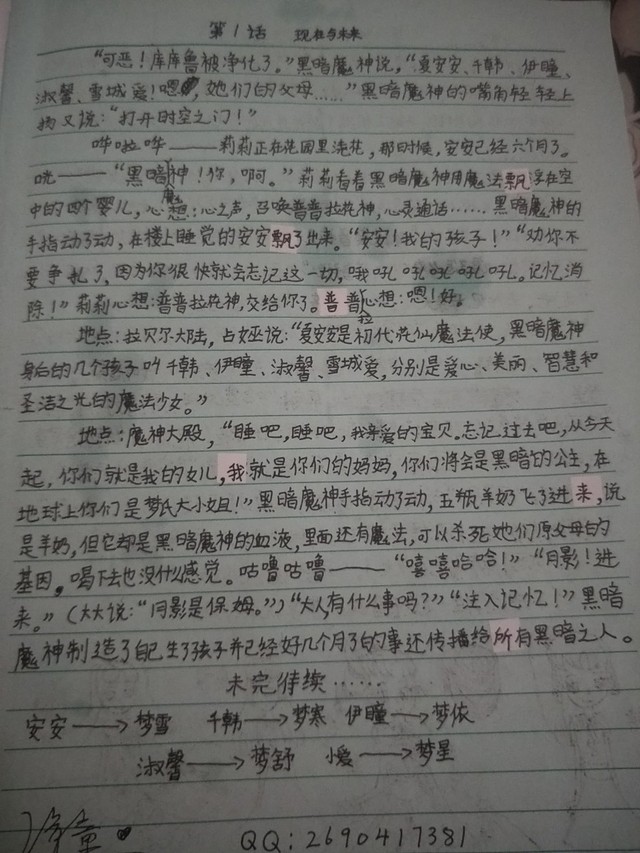 第1话 现在与未来
“可恶！库库鲁被净化了。”黑暗魔神说，“夏安安、千韩、伊瞳、
淑馨、雪城爱！嗯，她们的父母……”黑暗魔神的嘴角轻轻上
扬又说：“打开时空之门！”
哗啦哗——莉莉正在花园里浇花，那时候，安安已经六个月了。
咣——“黑暗魔神！你，啊。”莉莉看着黑暗魔神用魔法飘浮在空
中的四个婴儿，心想：心之声，召唤普普拉花神，心灵通话……黑暗魔神的
手指动了动，在楼上睡觉的安安飘了出来。“安安！我的孩子！”“劝你不
要争扎了，因为你很快就会忘记这一切，哦吼吼吼吼吼吼。记忆消
除！”莉莉心想：普普拉花神，交给你了。普普拉心想：嗯！好。
地点：拉贝尔大陆，占女巫说：“夏安安是初代花仙魔法使，黑暗魔神
身后的几个孩子叫千韩、伊瞳、淑馨、雪城爱，分别是爱心、美丽、智慧和
圣洁之光的魔法少女。”
地点：魔神大殿，“睡吧，睡吧，我亲爱的宝贝。忘记过去吧，从今天
起，你们就是我的女儿，我就是你们的妈妈，你们将会是黑暗的公主，在
地球上你们是梦氏大小姐！”黑暗魔神手指动了动，五瓶羊奶飞了进来，说
是羊奶，但它却是黑暗魔神的血液，里面还有魔法，可以杀死她们原父母的
基因。喝下去也没什么感觉。咕噜咕噜——“嘻嘻哈哈！”“月影！进
来。”（大大说：“月影是保姆。”）“大人，有什么事吗？”“注入记忆！”黑暗
魔神制造了自己生了孩子并已经好几个月了的事还传播给所有黑暗之人。
未完待续……
安安——→梦雪 千韩——→梦寒 伊瞳——→梦依
淑馨——→梦舒 小爱——→梦星
QQ：2690417381